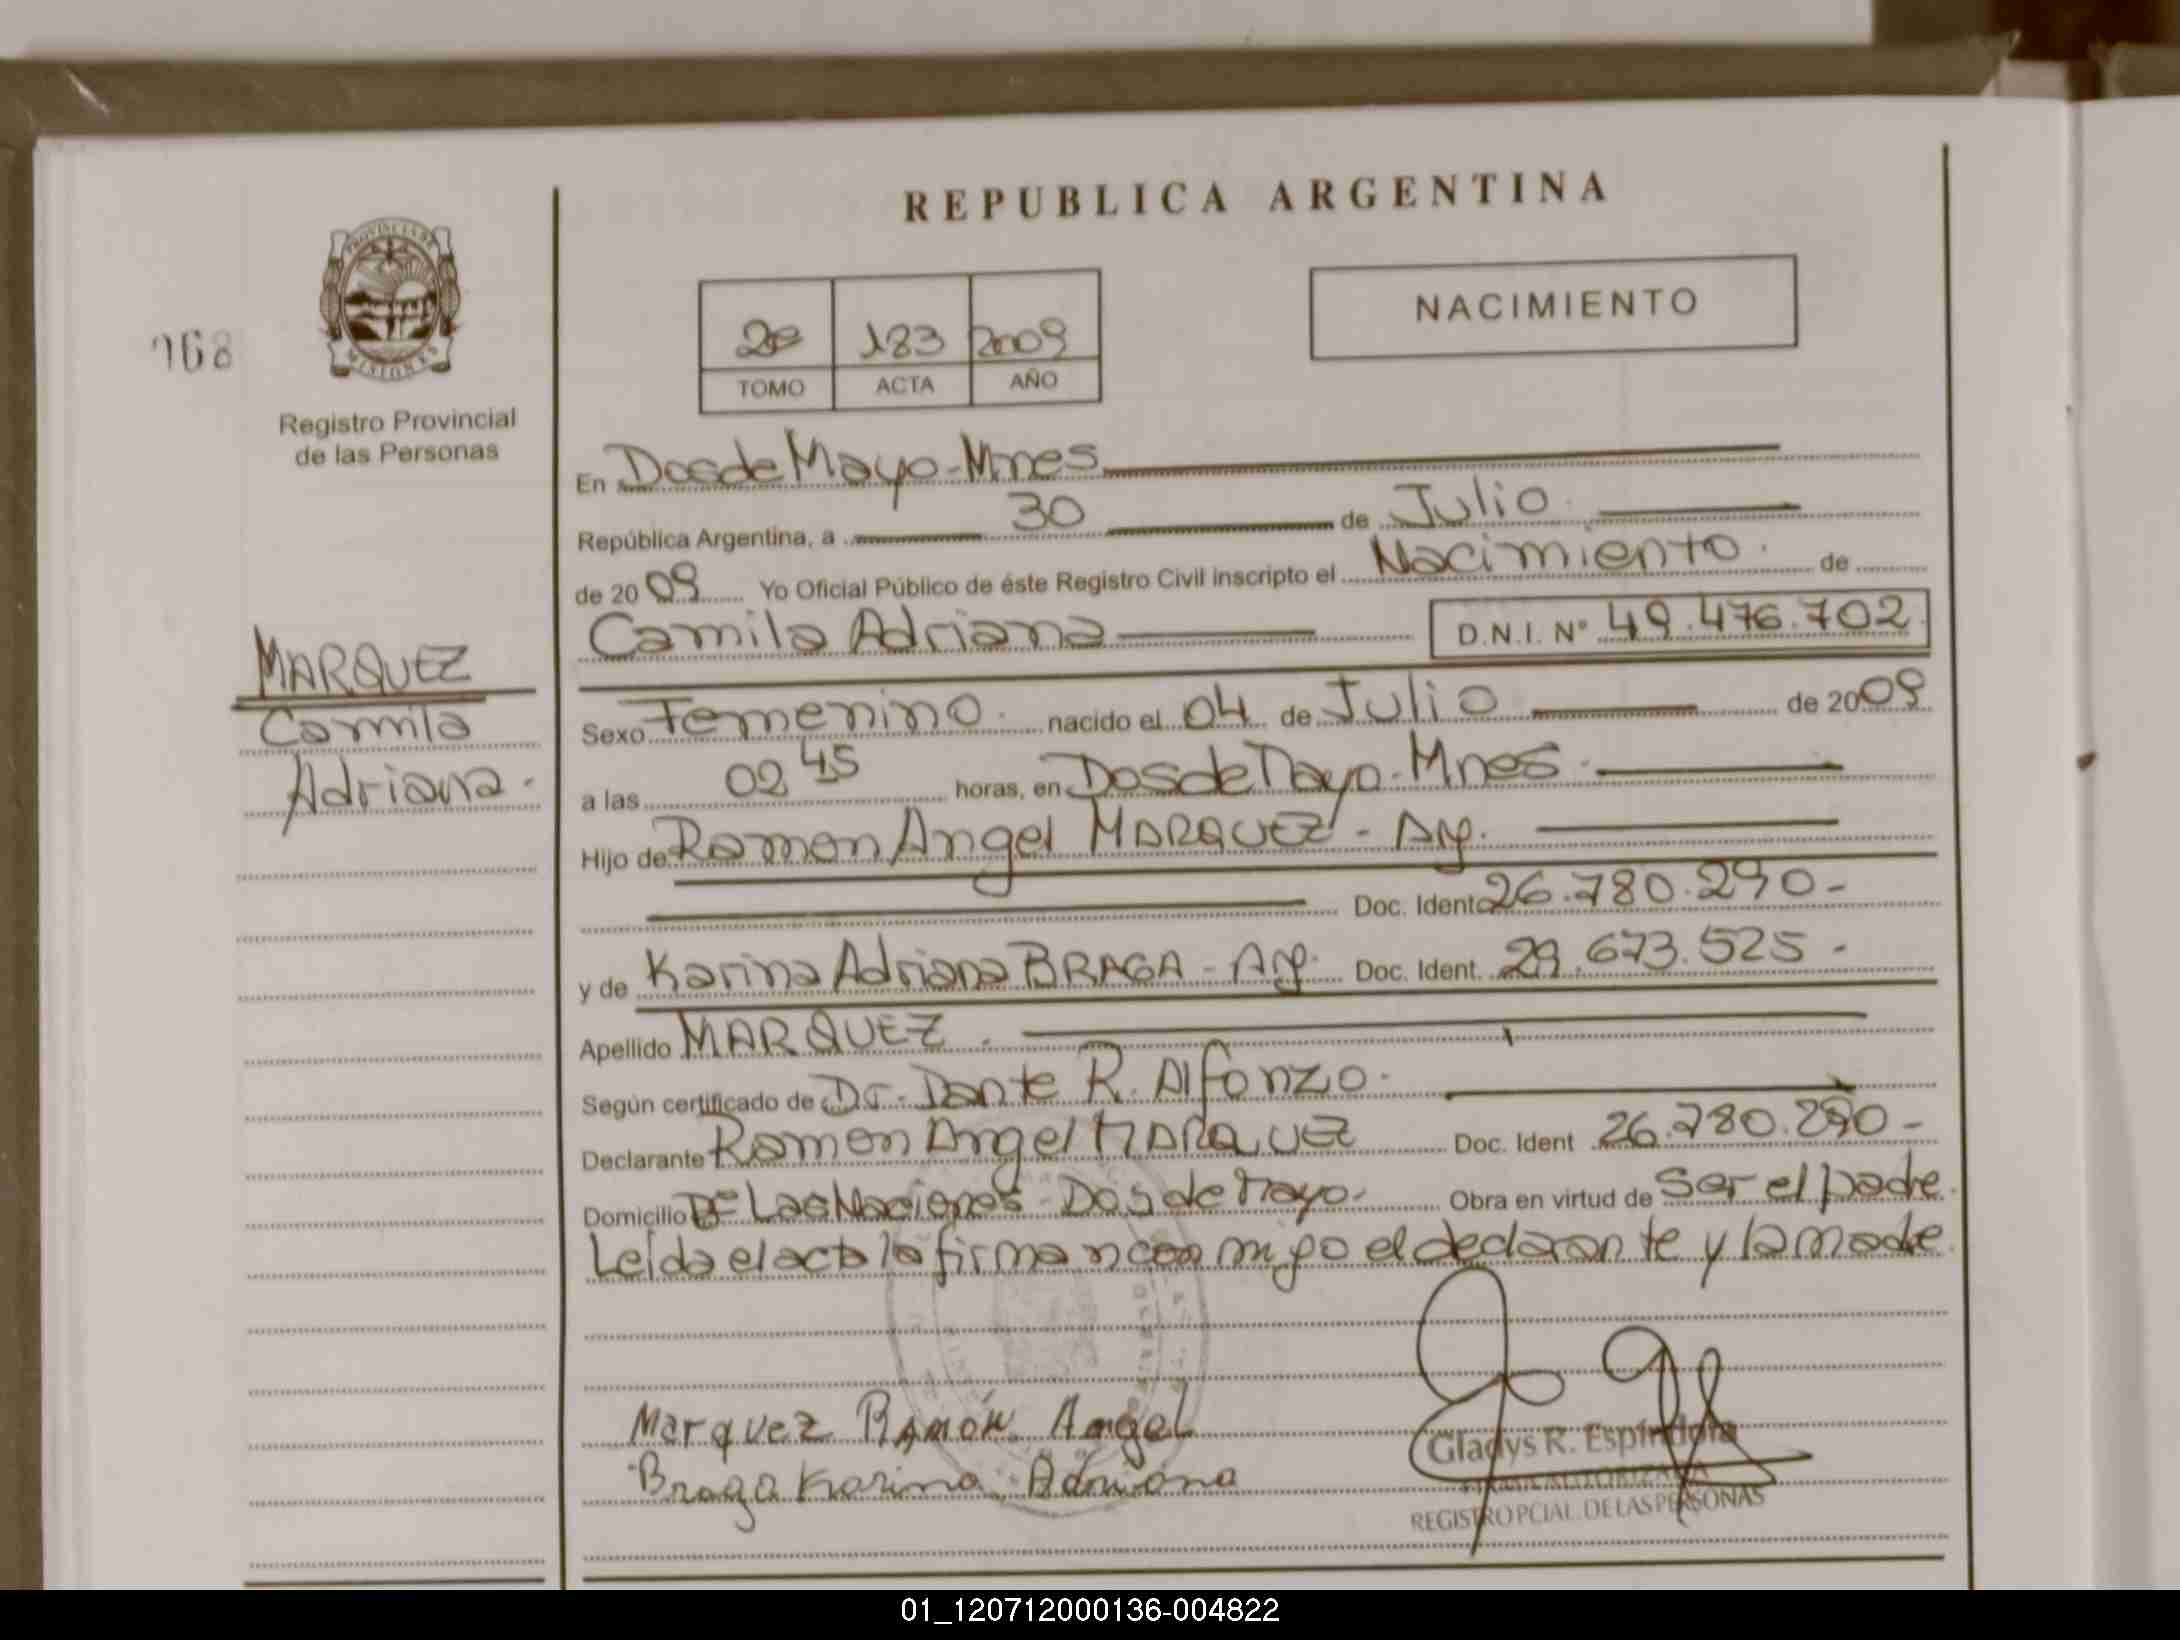 REPUBLICA ARGENTINA
NACIMIENTO
168
PROVINCIA DE
MISIONES
Registro Provincial
de las Personas
2º 183 2009
TOMO ACTA AÑO
En Dos de Mayo - Mnes
República Argentina, a 30 de Julio
de 2009 Yo Oficial Público de éste Registro Civil inscripto el Nacimiento de
Camila Adriana D.N.I. Nº 49.476.702
MARQUEZ
Camila
Adriana.
Sexo Femenino. nacido el 04 de Julio de 2009
a las 02 45 horas, en Dos de Mayo - Mnes.
Hijo de Ramon Angel MARQUEZ - Arg.
Doc. Ident 26.780.290-
y de Karina Adriana BRAGA - Arg. Doc. Ident. 29.673.525 -
Apellido MARQUEZ.
Según certificado de Dr. Dante R. Alfonzo.
Declarante Ramon Angel MARQUEZ Doc. Ident 26.780.290-
Domicilio Bº Las Naciones - Dos de Mayo. Obra en virtud de Ser el padre.
Leída el acta la firman con migo el declarante y la madre.
Marquez Ramón Angel
Braga Karina Adriana
Gladys R. Espíndola
FIRMA AUTORIZADA
REGISTRO PCIAL. DE LAS PERSONAS
01_120712000136-004822